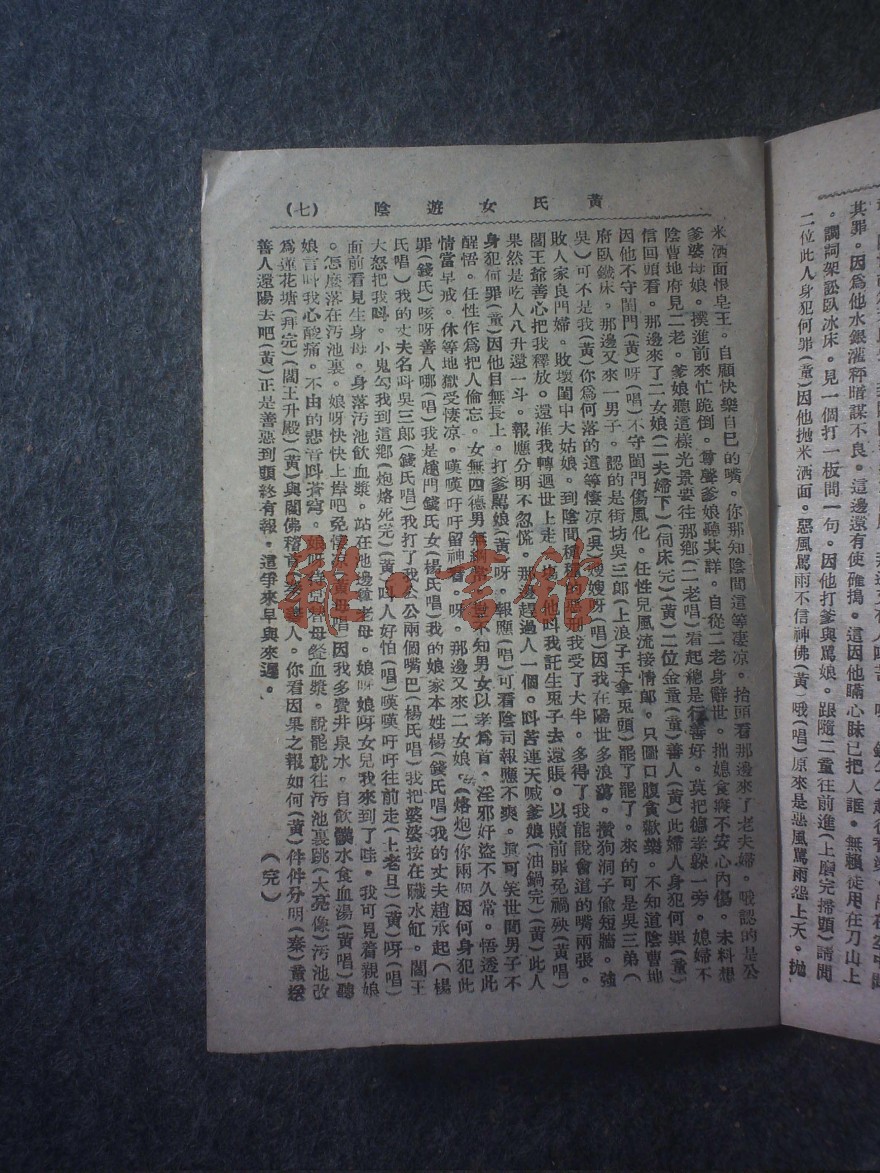 黃氏女遊陰
(七)
米洒面恨皂王。自顧快樂自巳的嘴。你那知陰間這等凄凉。抬頭看那邊來了老夫婦。哦認的是公
爹婆母娘。撲進前來忙跪倒。尊聲爹娘聽其詳。自從二老身辭世。拙媳食寢不安心內傷。未料想
陰曹地府見二老。爹娘聽這樣光景要往那鄉(二老唱)看起總是行善好。莫把德幸躱一旁。媳婦不
信回頭看。那邊來了二女娘(二夫婦下)(伺床完)(黃)二位金童(童)善人(黃)此婦人身犯何罪(童)
因他不守閨門(黃)呀(唱)不守閨門傷風化。任性兒風流接情郎。只圖口腹貪歡樂。不知道陰曹地
府臥鐵床。那邊又來一男子。認的是街坊吳三郎(上浪子王拿兎頭)罷了罷了。來的可是吳三弟(
吳)可不是我(黃)你爲何落的這等悽凉(吳)嫂嫂呀(唱)因我在陽世多浪蕩。攅狗洞子偷短牆。強
敗人家良門婦。敗壞閨中大姑娘。到陰間種種的惡刑我受了大半。多得了我能說會道的嘴兩張。
閻王爺善心把我釋放。還准我轉迴世上走一塲。他呌我託生兎子去還賬。以贖前罪免禍殃(黃唱)
果然是吃人八升還一斗。報應分明不忽慌。那邊趕過人一個。呌苦連天喊爹娘(油鍋完)(黃)此人
身犯何罪(童)因他目無長上。打爹駡娘(黃)呀。報應(唱)可看陰司報應不爽。眞可笑世間男子不
醒悟。任性作爲把人倫忘。女無四德男無綱常。豈不知男女以孝爲首。淫邪奸盜不久常。悟透此
情當早戒。休等地獄受悽凉。嘆嘆吁吁留神看。呀。那邊又來二女娘。(烙炮)你兩個因何身犯此
罪(錢氏)咳呀善人哪(唱)我是趙門錢氏女(楊氏唱)我的娘家本姓楊(錢氏唱)我的丈夫趙承起(楊
氏唱)我的丈夫名呌吳三郎(錢氏唱)我打了我公公兩個嘴巴(楊氏唱)我把婆婆按在臟水缸。閻王
大怒把我呌。小鬼勾我到這鄉(炮烙死完)(黃)四人好怕(唱)嘆嘆吁吁往前走(上老旦)(黃)呀(唱)
面前看見生身母。身落污池飮血漿。站在池邊尊老母。娘呀娘呀女兒我來到了哇。我可見着親娘
。怎麽落在污池裏。娘呀快快上岸吧免悽凉(黃母唱)因我多費井泉水。自飮髒水食血湯(黃唱)聽
娘言呌我心酸痛。不由的悲音呌蒼穹。娘呀待兒替母餐血漿。說罷就往污池裏跳(大亮像)污池改
爲蓮花塘(拜完)(閻王升殿)(黃)與閻佛稽首(秦)善人。你看因果之報如何(黃)件件分明(秦)童送
善人還陽去吧(黃)正是善惡到頭終有報。這爭來早與來遲。
(完)
其罪。因爲他水銀灌秤暗謀不良。這邊還有使碓搗。這因他瞞心昧巳把人誆。無賴徒甩在刀山上
。調詞架訟臥冰床。見一個打一板問一句。因他打爹與駡娘。跟隨二童往前進(上磨完掃頭)請問
二位此人身犯何罪(童)因他拋米洒面。惡風駡雨不信神佛(黃)哦(唱)原來是惡風駡雨怨上天。拋
雜·書館